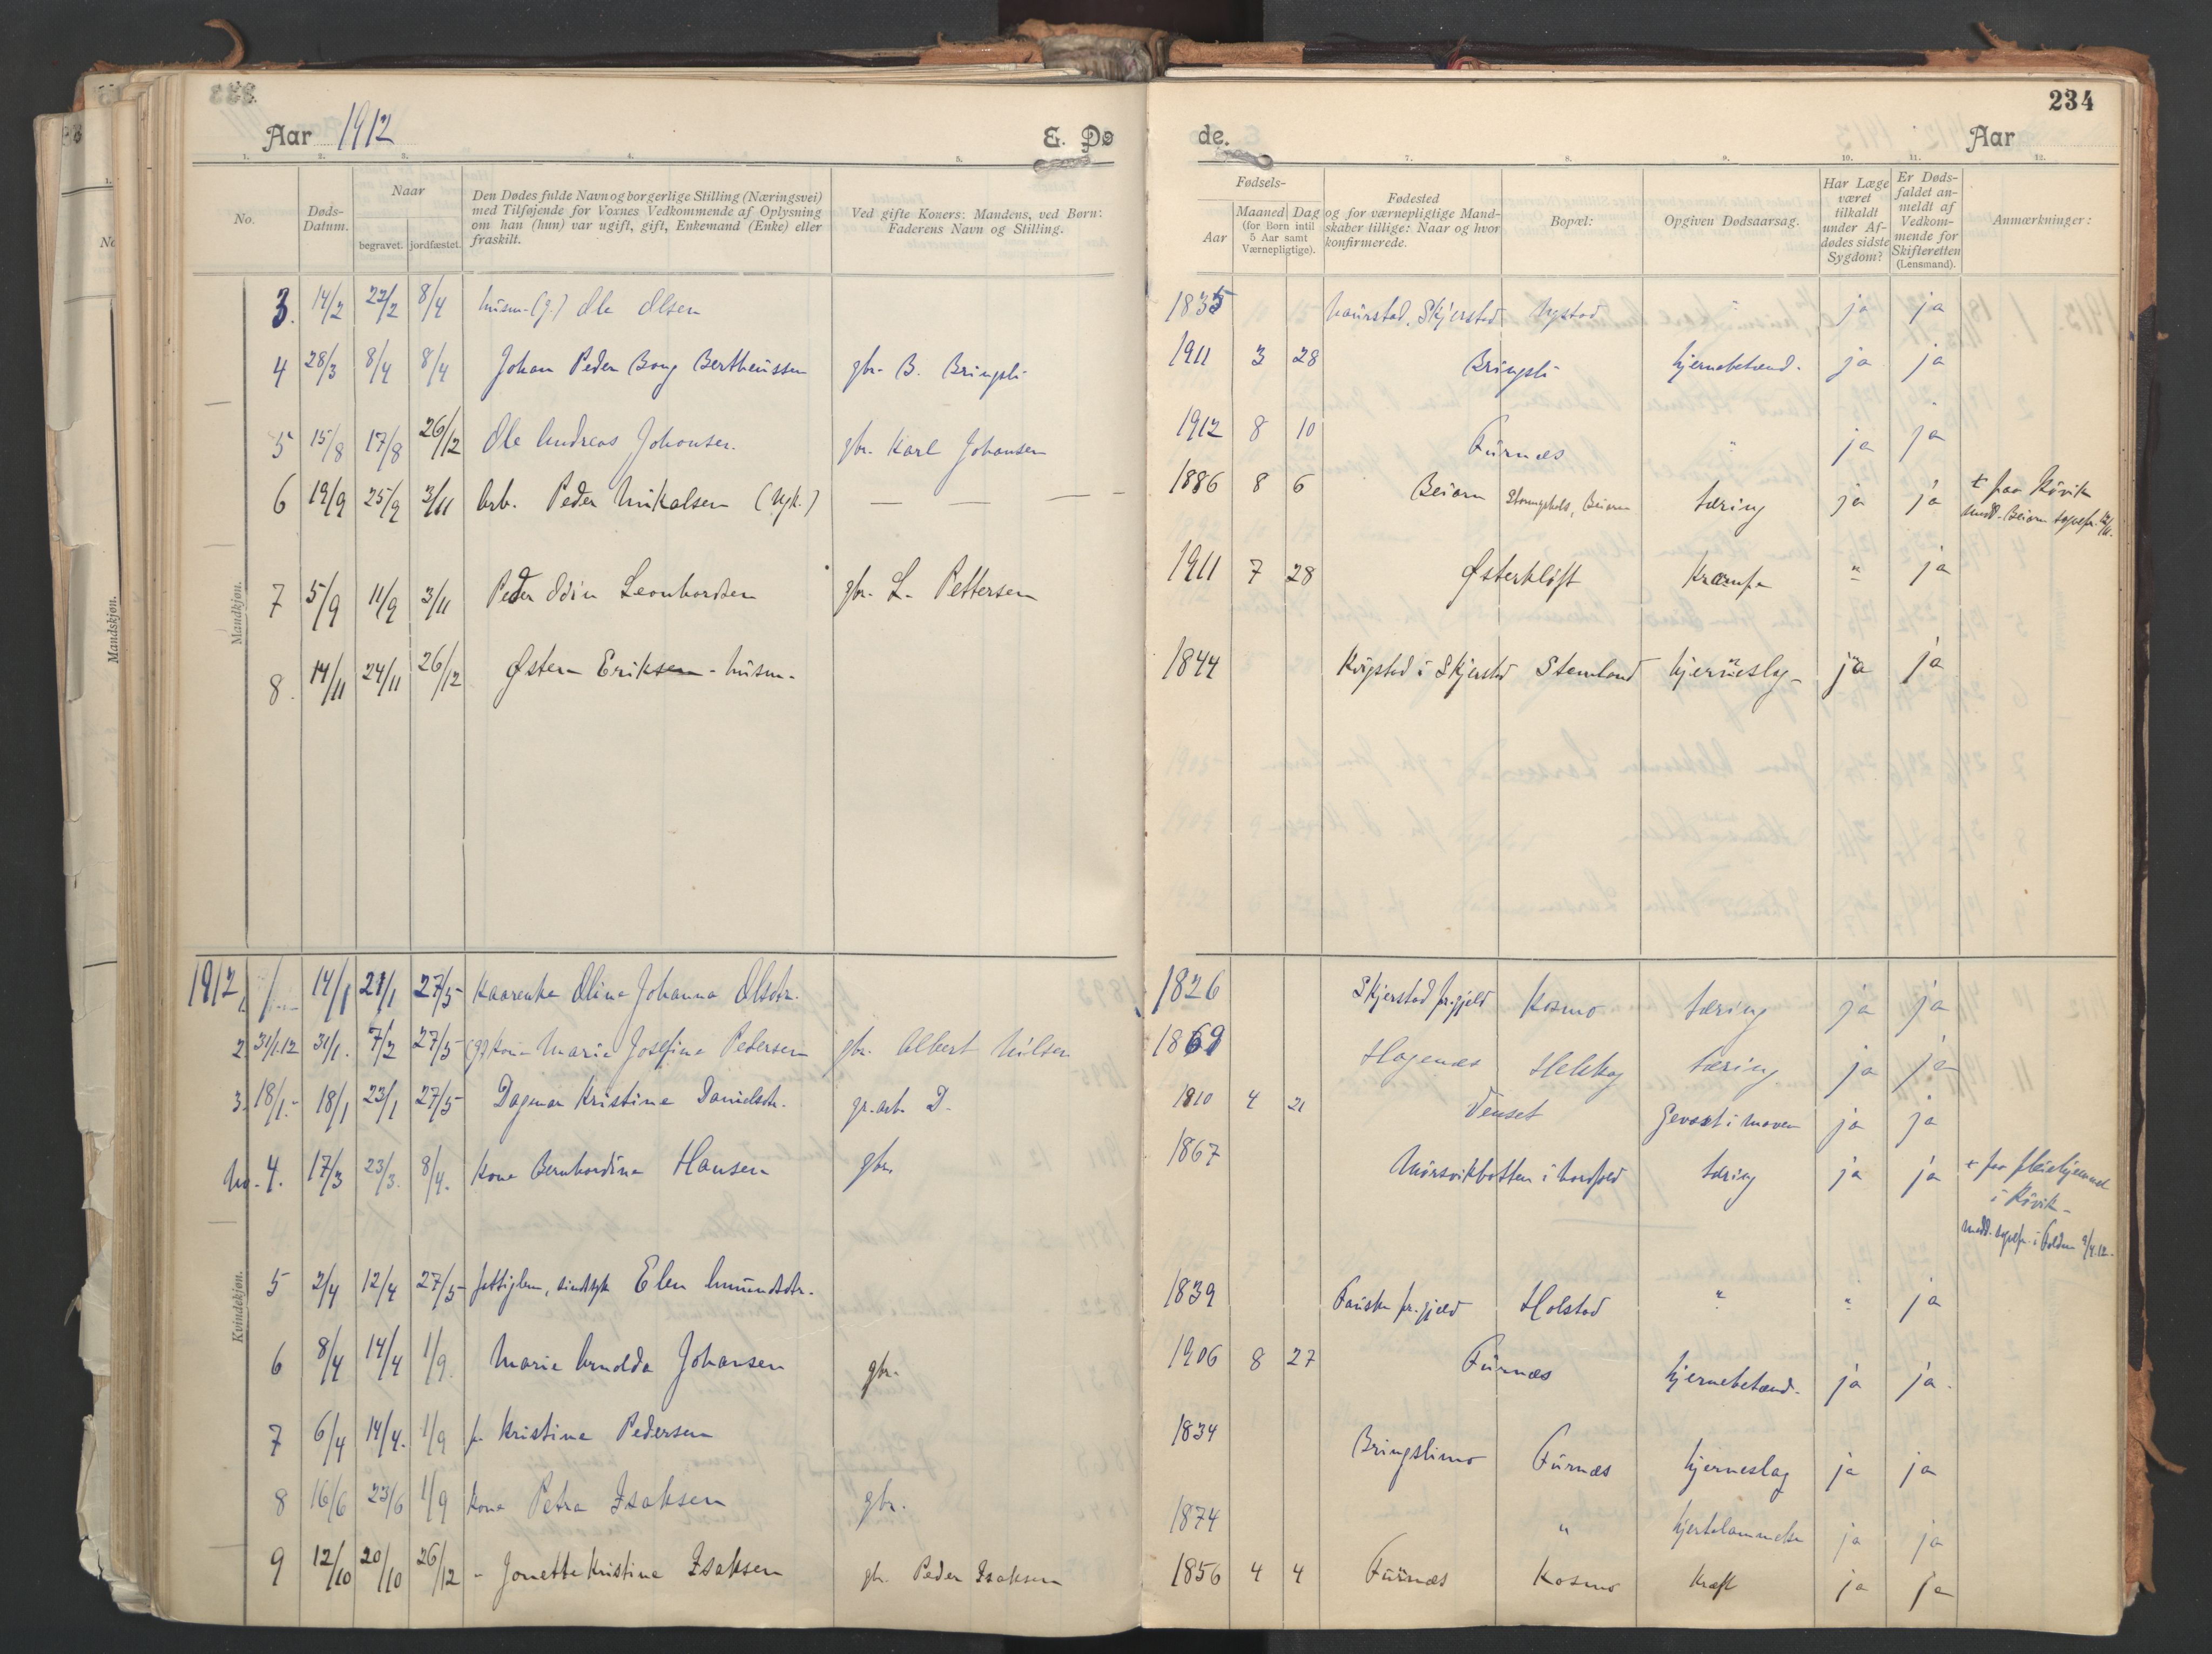 234
Aar 1912 E. Dø de. Aar
1. 2. 3. 4. 5. 7. 8. 9. 10. 11. 12.
No.
Døds-
Datum.
Naar
begravet. jordfæstet.
Den Dødes fulde Navn og borgerlige Stilling (Næringsvei)
med Tilføjende for Voxnes Vedkommende af Oplysning
om han (hun) var ugift, gift, Enkemand (Enke) eller
fraskilt.
Ved gifte Koners: Mandens, ved Børn:
Faderens Navn og Stilling.
Fødsels-
Aar
Maaned Dag
(for Børn intil
5 Aar samt
Værnepligtige).
Fødested
og for værnepligtige Mand-
skaber tillige: Naar og hvor
konfirmerede.
Bopæl:
Opgiven Dødsaarsag.
Har Læge
været
tilkaldt
under Af-
dødes sidste
Sygdom?
Er Døds-
faldet an-
meldt af
Vedkom-
mende for
Skifteretten
(Lensmand).
Anmærkninger:
Mandkjøn.
3. 14/2 22/2 8/4 husm. (g.) Ole Olsen 1835 Skjerstad " ja ja
4 28/3 8/4 8/4 Johan Peder Berntheussen gbr. B. Bringsli 1911 3 28 Bringsli hjernebetænd. ja ja
5 15/8 17/8 26/12 Ole Andreas Johansen. gbr. Karl Johansen 1912 8 10 Furnæs " ja ja
6 19/9 25/9 3/11 Arb. Peder Mikalsen (Ugk.) — — — 1886 8 6 Beiarn Beiarn tæring ja ja + paa Røvik
medd. Beiarn sognepr.
7 5/9 11/9 3/11 Peder Odin Leonhardsen gbr. L. Pettersen 1911 7 28 Østerkløft Krampe " ja
8. 14/11 24/11 26/12 Østen Eriksen - husm. 1844 i Skjerstad Stemland hjerneslag ja ja
Kvindekjøn.
1912, 1. 14/1 21/1 27/5 Kaarenke Oline Johanna Olsdtr. 1826 Skjerstad pr.gjeld Kosmo tæring ja ja
2 31/1.12 31/1. 7/2 27/5 (g) Kone Marie Josefine Pedersen gbr. Albert Nilsen 1869 Hagenæs tæring ja ja
3. 18/1.- 18/1 23/1 27/5 Dagmar Kristine Danielsdtr. gr.arb. D. 1910 4 21 Venset Gevæxt i maven ja ja
No. 4. 17/3 23/3. 8/4. Kone Bernhardine Hansen gbr. 1867 Mørsvikbotten i Nordfold tæring ja ja + paa pleiehjemmet
i Røvik -
medd. sognepr. i Folden 9/4.12.
5 2/4 12/4 27/5 fattiglem, sindssyk Elen Amundsdtr. 1839 Fauske pr.gjeld Holstad " " ja
6 8/4 14/4 1/9. Marie Arnolda Johansen gbr. 1906 8 27 Furnæs hjernebetænd. ja ja.
7 6/4 14/4. 1/9 f. Kristine Pedersen 1834 Bringslimo Furnæs hjerneslag ja ja
8 16/6 23/6 1/9 Kone Petra Isaksen gbr. 1874 " hjertelammelse ja ja
9 12/10 20/10 26/12 - Jonette Kristine Isaksen gbr. Peder Isaksen 1856 4 4 Furnæs Kosmo Kræft ja ja
Mandskjøn.